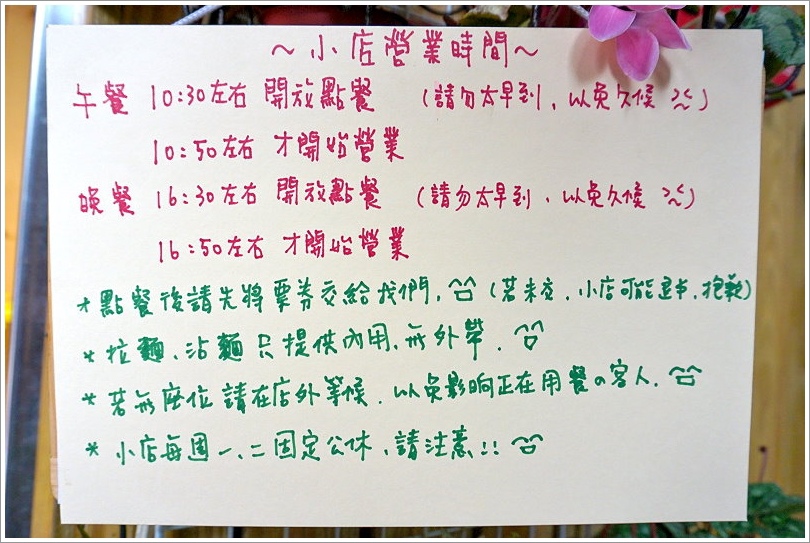 ～小店營業時間～
午餐 10:30左右 開放點餐 (請勿太早到、以免久候)
10:50左右 才開始營業
晚餐 16:30左右 開放點餐 (請勿太早到、以免久候)
16:50左右 才開始營業
*點餐後請先將票券交給我們, (若未交、小店可能退書,抱歉)
*拉麵、沾麵只提供內用、無外帶.
*若無座位請在店外等候.以免影响正在用餐の客人.
*小店每週一、二固定公休、請注意!!